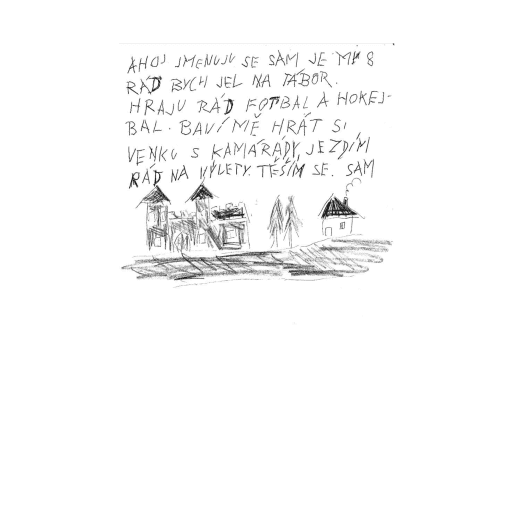 AHOJ JMENUJU SE SAM JE MI 8
RÁD BYCH JEL NA TÁBOR.
HRAJU RÁD FOTBAL A HOKEJ-
BAL. BAVÍ MĚ HRÁT SI
VENKU S KAMARÁDY, JEZDÍM
RÁD NA VÝLETY. TĚŠÍM SE. SAM